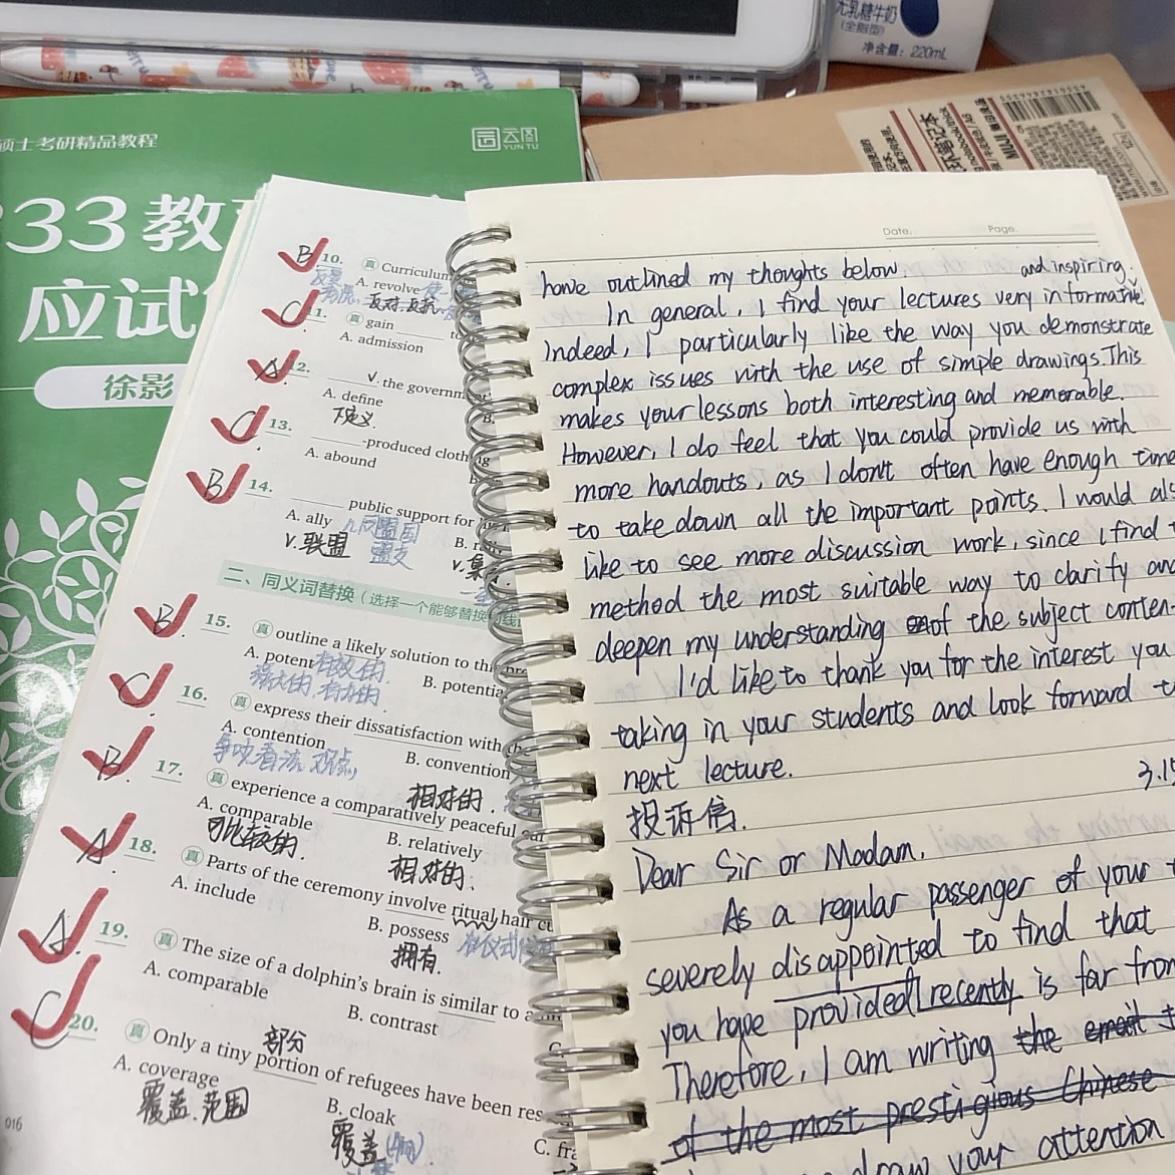 无乳糖牛奶
(全脂型)
净含量：220mL
硕士考研精品教程
云图
YUN TU
333教
应试
徐影
MUJI
B 10. 真 Curriculum
A. revolve
反对.反抗
C 11. 真 gain
A. admission
A 12. the governm
A. define
下定义
C 13. -produced cloth
A. abound
B 14. public support for
A. ally
V.联盟
盟友
二、同义词替换（选择一个能够替换
B 15. 真 outline a likely solution to
A. potent 有效的
强大的,有力的
B. potentia
C 16. 真 express their dissatisfaction with
A. contention
争吵,看法,观点
B. convention
B 17. 真 experience a comparatively peaceful
相对的.
A. comparable
可比较的.
B. relatively
相对的.
A 18. 真 Parts of the ceremony involve ritual hair cu
A. include
B. possess
拥有.
A 19. 真 The size of a dolphin's brain is similar to
A. comparable
B. contrast
C 20. 真 Only a tiny portion of refugees have been res
部分
A. coverage
覆盖.范围
B. cloak
覆盖
C. fra
016
Date. Page.
have outlined my thoughts below.
and inspiring.
In general, I find your lectures very informative.
Indeed, I particularly like the way you demonstrate
complex issues with the use of simple drawings. This
makes your lessons both interesting and memorable.
However, I do feel that you could provide us with
more handouts, as I don't often have enough time
to take down all the important points. I would als
like to see more discussion work, since I find t
method the most suitable way to clarify and
deepen my understanding of the subject conten
I'd like to thank you for the interest you
taking in your students and look forward t
next lecture.
3.15
投诉信.
Dear Sir or Madam,
As a regular passenger of your
severely disappointed to find that
you have provided recently is far from
Therefore, I am writing the email t
of the most prestigious Chinese
draw your attention